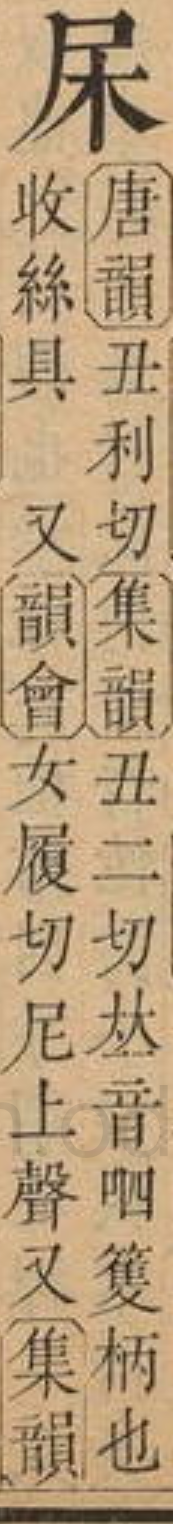 杘
唐韻丑利切集韻丑二切𠀤音呬籆柄也
收絲具 又韻會女履切尼上聲又集韻